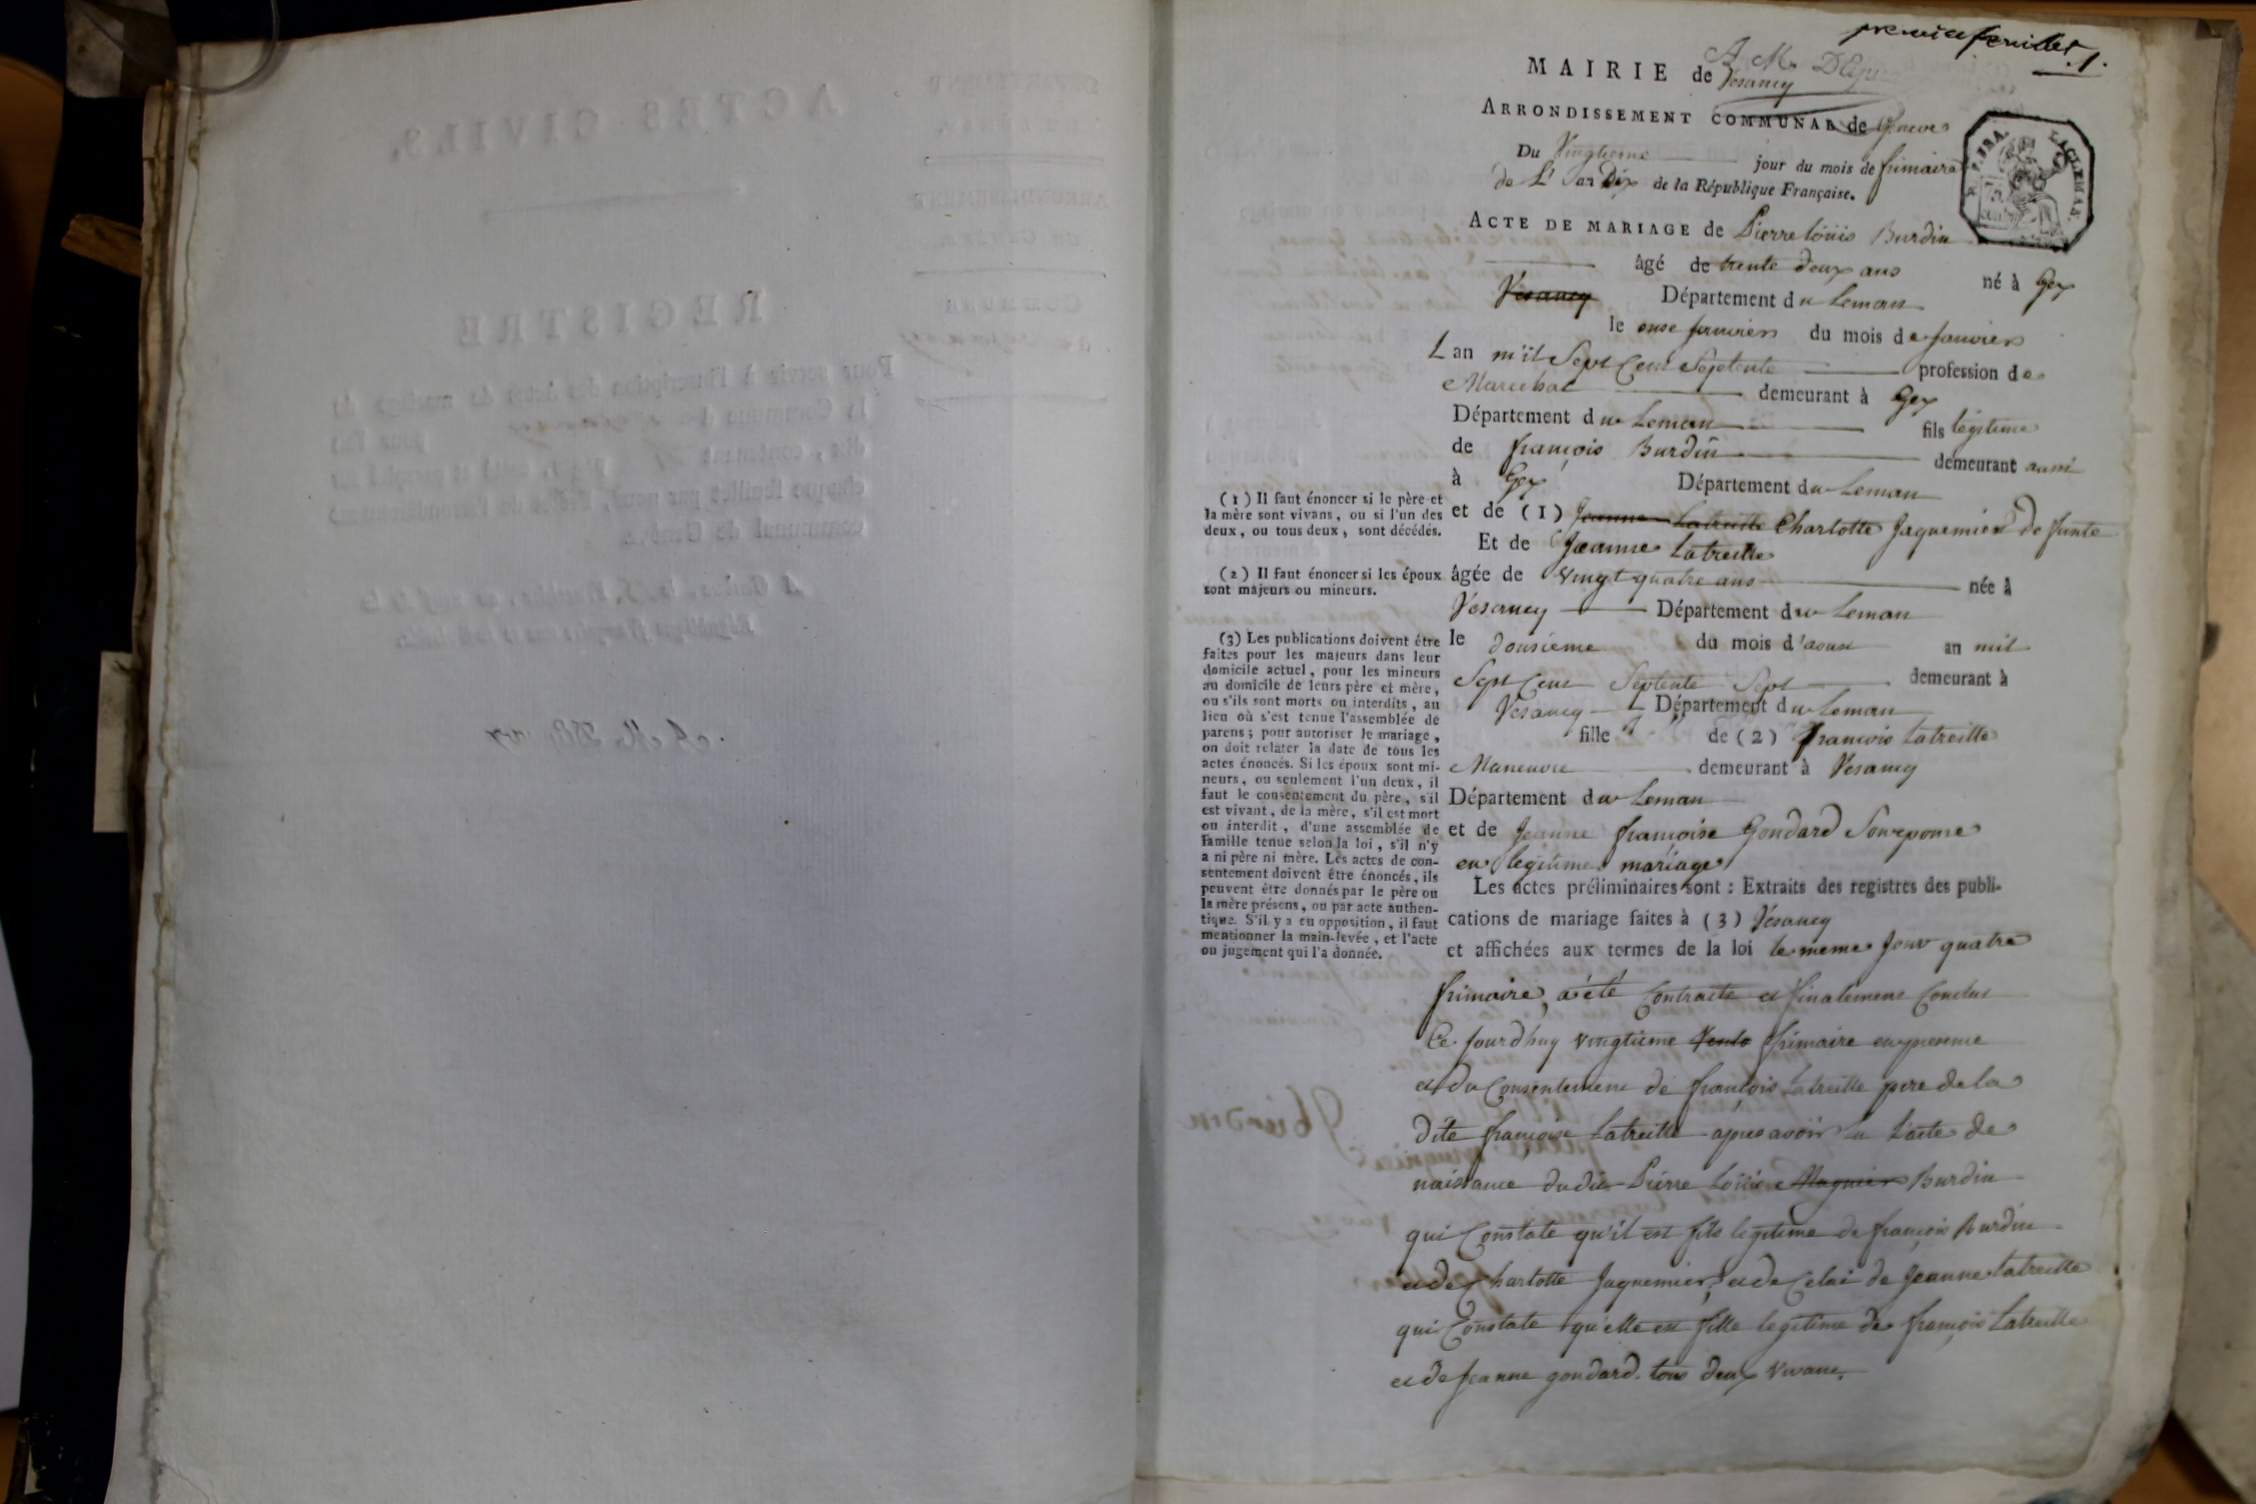 premier feuillet .1.
A. M. 
MAIRIE de Vesancy
ARRONDISSEMENT COMMUNAL de Geneve
Du Vingtieme jour du mois de frimaire
de L'an Dix de la République Française.
ACTE DE MARIAGE de Pierre loüis Burdin
âgé de trente deux ans né à Gex
Vesancy Département du Leman
le onse janvier du mois de Janvier
L an mil Sept Cent Septente profession de
Marechal demeurant à Gex
Département du Leman fils legitime
de françois Burdin demeurant aussi
à Gex Département du Leman
et de (1) Jeanne Latreille Charlotte Jaquemier de funte
Et de Jeanne Latreille
âgée de vingt quatre ans née à
Vesancy Département du Leman
le dousieme du mois d'aoust an mil
Sept Cent Septente Sept demeurant à
Vesancy Département du Leman
fille de (2) françois Latreille
Maneuvre demeurant à Vesancy
Département du Leman
et de Jeanne françoise Gondard
en legitime mariage
Les actes préliminaires sont : Extraits des registres des publi-
cations de mariage faites à (3) Vesancy
et affichées aux termes de la loi le meme Jour quatre
frimaire, a été Contracté et finalement Conclut
Ce Jourd'huy vingtieme frimaire
et du Consentement de francois Latreille pere de la
dite françoise Latreille apres avoir lu l'acte de
naissance dudit Pierre Loüis Magnier Burdin
qui Constate qu'il est fils legitime de françois Burdin
et de Charlotte Jaquemier, et de Celui de Jeanne Latreille
qui Constate qu'elle est fille legitime de françois Latreille
et de Jeanne gondard. tous deux vivant.
(1) Il faut énoncer si le père et
la mère sont vivans, ou si l'un des
deux, ou tous deux, sont décédés.
(2) Il faut énoncer si les époux
sont majeurs ou mineurs.
(3) Les publications doivent être
faites pour les majeurs dans leur
domicile actuel, pour les mineurs
au domicile de leurs père et mère,
ou s'ils sont morts ou interdits, au
lieu où s'est tenue l'assemblée de
parens ; pour autoriser le mariage,
on doit relater la date de tous les
actes énoncés. Si les époux sont mi-
neurs, ou seulement l'un deux, il
faut le consentement du père, s'il
est vivant, de la mère, s'il est mort
ou interdit, d'une assemblée de
famille tenue selon la loi, s'il n'y
a ni père ni mère. Les actes de con-
sentement doivent être énoncés, ils
peuvent être donnés par le père ou
la mère présens, ou par acte authen-
tique. S'il y a eu opposition, il faut
mentionner la main-levée, et l'acte
ou jugement qui l'a donnée.